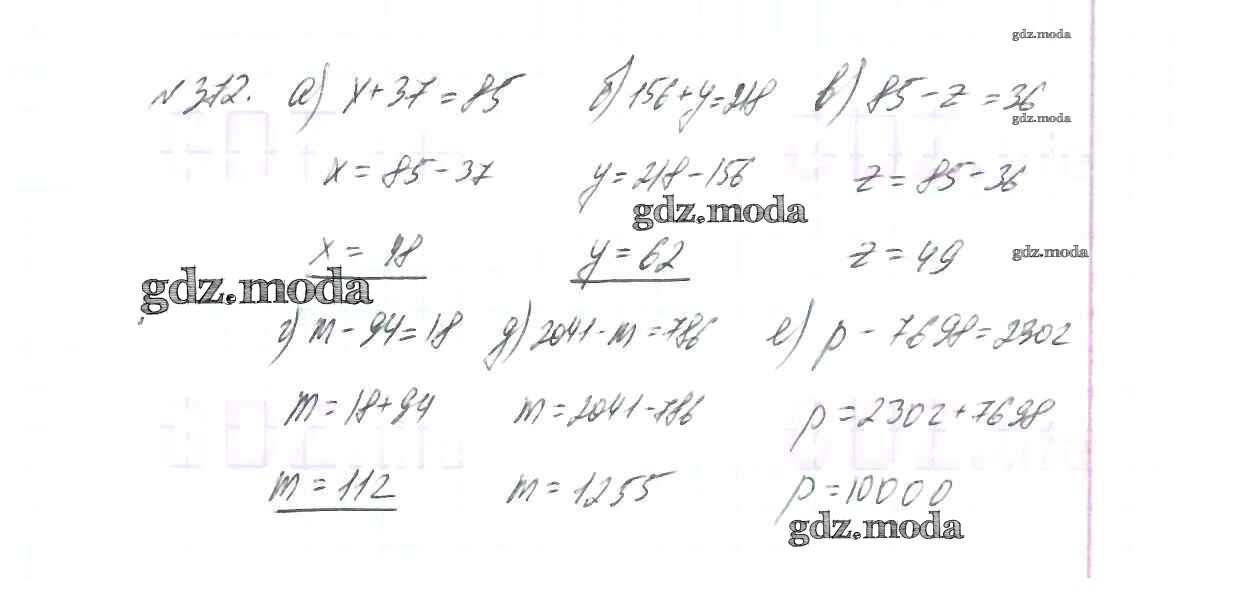 gdz.moda
№372. а) x+37=85 б) 156+y=218 в) 85-z=36
gdz.moda
x=85-37 y=218-156 z=85-36
gdz.moda
x=48 y=62 z=49
gdz.moda
gdz.moda
г) m-94=18 д) 2041-m=786 е) p-7698=2302
m=18+94 m=2041-786 p=2302+7698
m=112 m=1255 p=10000
gdz.moda